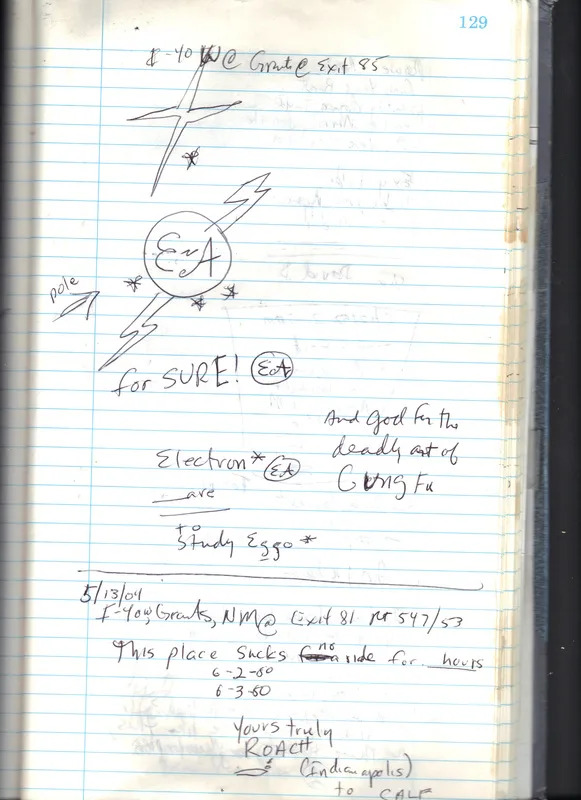 129
I-40 W @ Grants @ Exit 85
E A
pole
for SURE! EA
And God for the
deadly art of
Gung Fu
Electron* EA
are
to
Study Eggo *
5/13/04
I-40W, Grants, NM @ Exit 81 547/53
This place sucks no ride for hours
6-2-60
6-3-60
Yours truly
ROACH
(Indianapolis)
to CALF